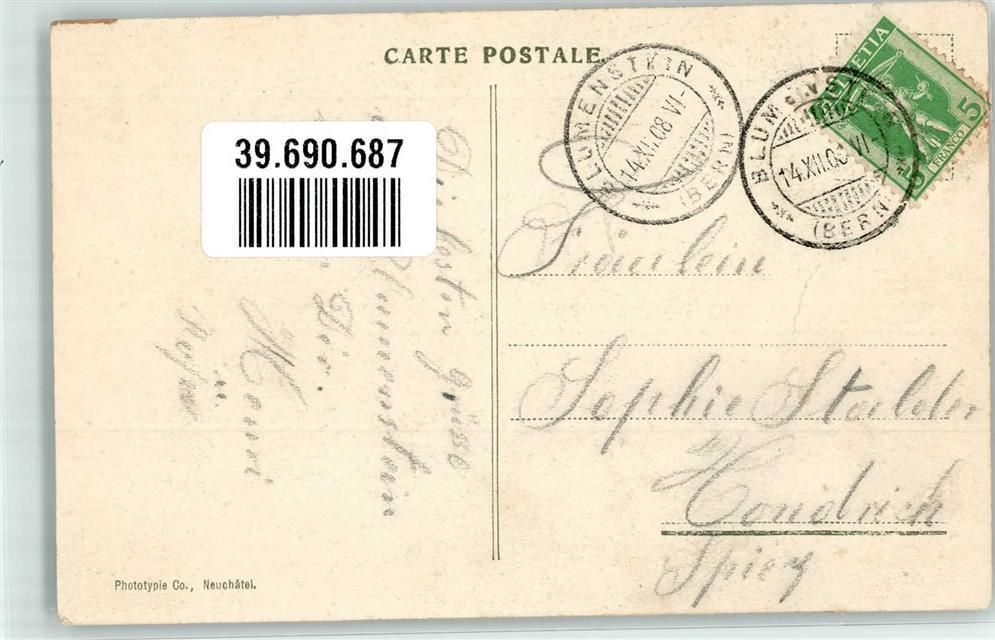 CARTE POSTALE.
39.690.687
BLUMENSTEIN
14.XII.08.VI-
(BERN)
BLUMENS
14.XII.08.VI
(BERN)
HELVETIA
5
FRANCO
5
Fräulein
Sophie Stalder
Hondrich
Spiez
besten grüsse
Blumenstein
Dir
Phototypie Co., Neuchâtel.